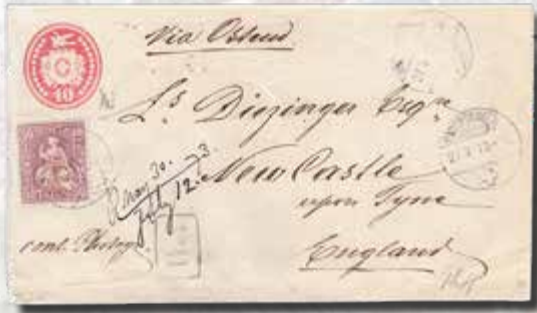 Via Ostend
10
L.s Dizinger Esqre
New Castle
upon Tyne
England
May 30. 73.
July 12.
cont. Photog.